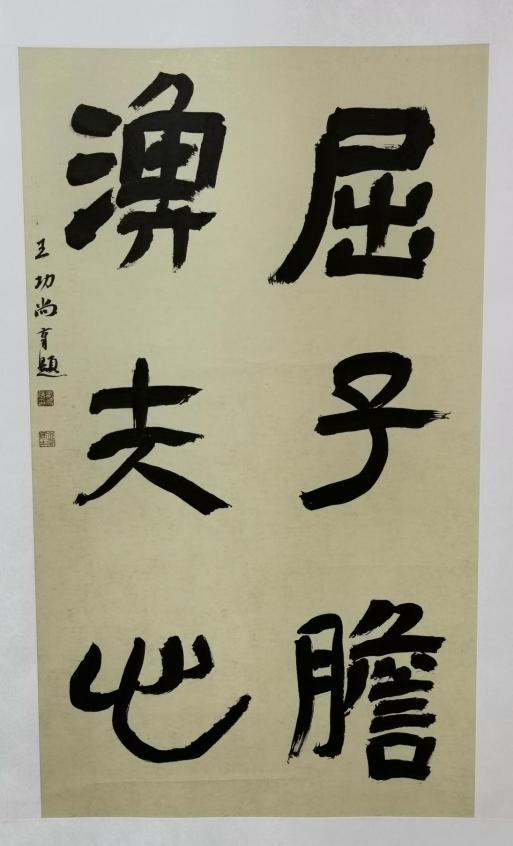 屈子膽
漁夫心
王功尚題